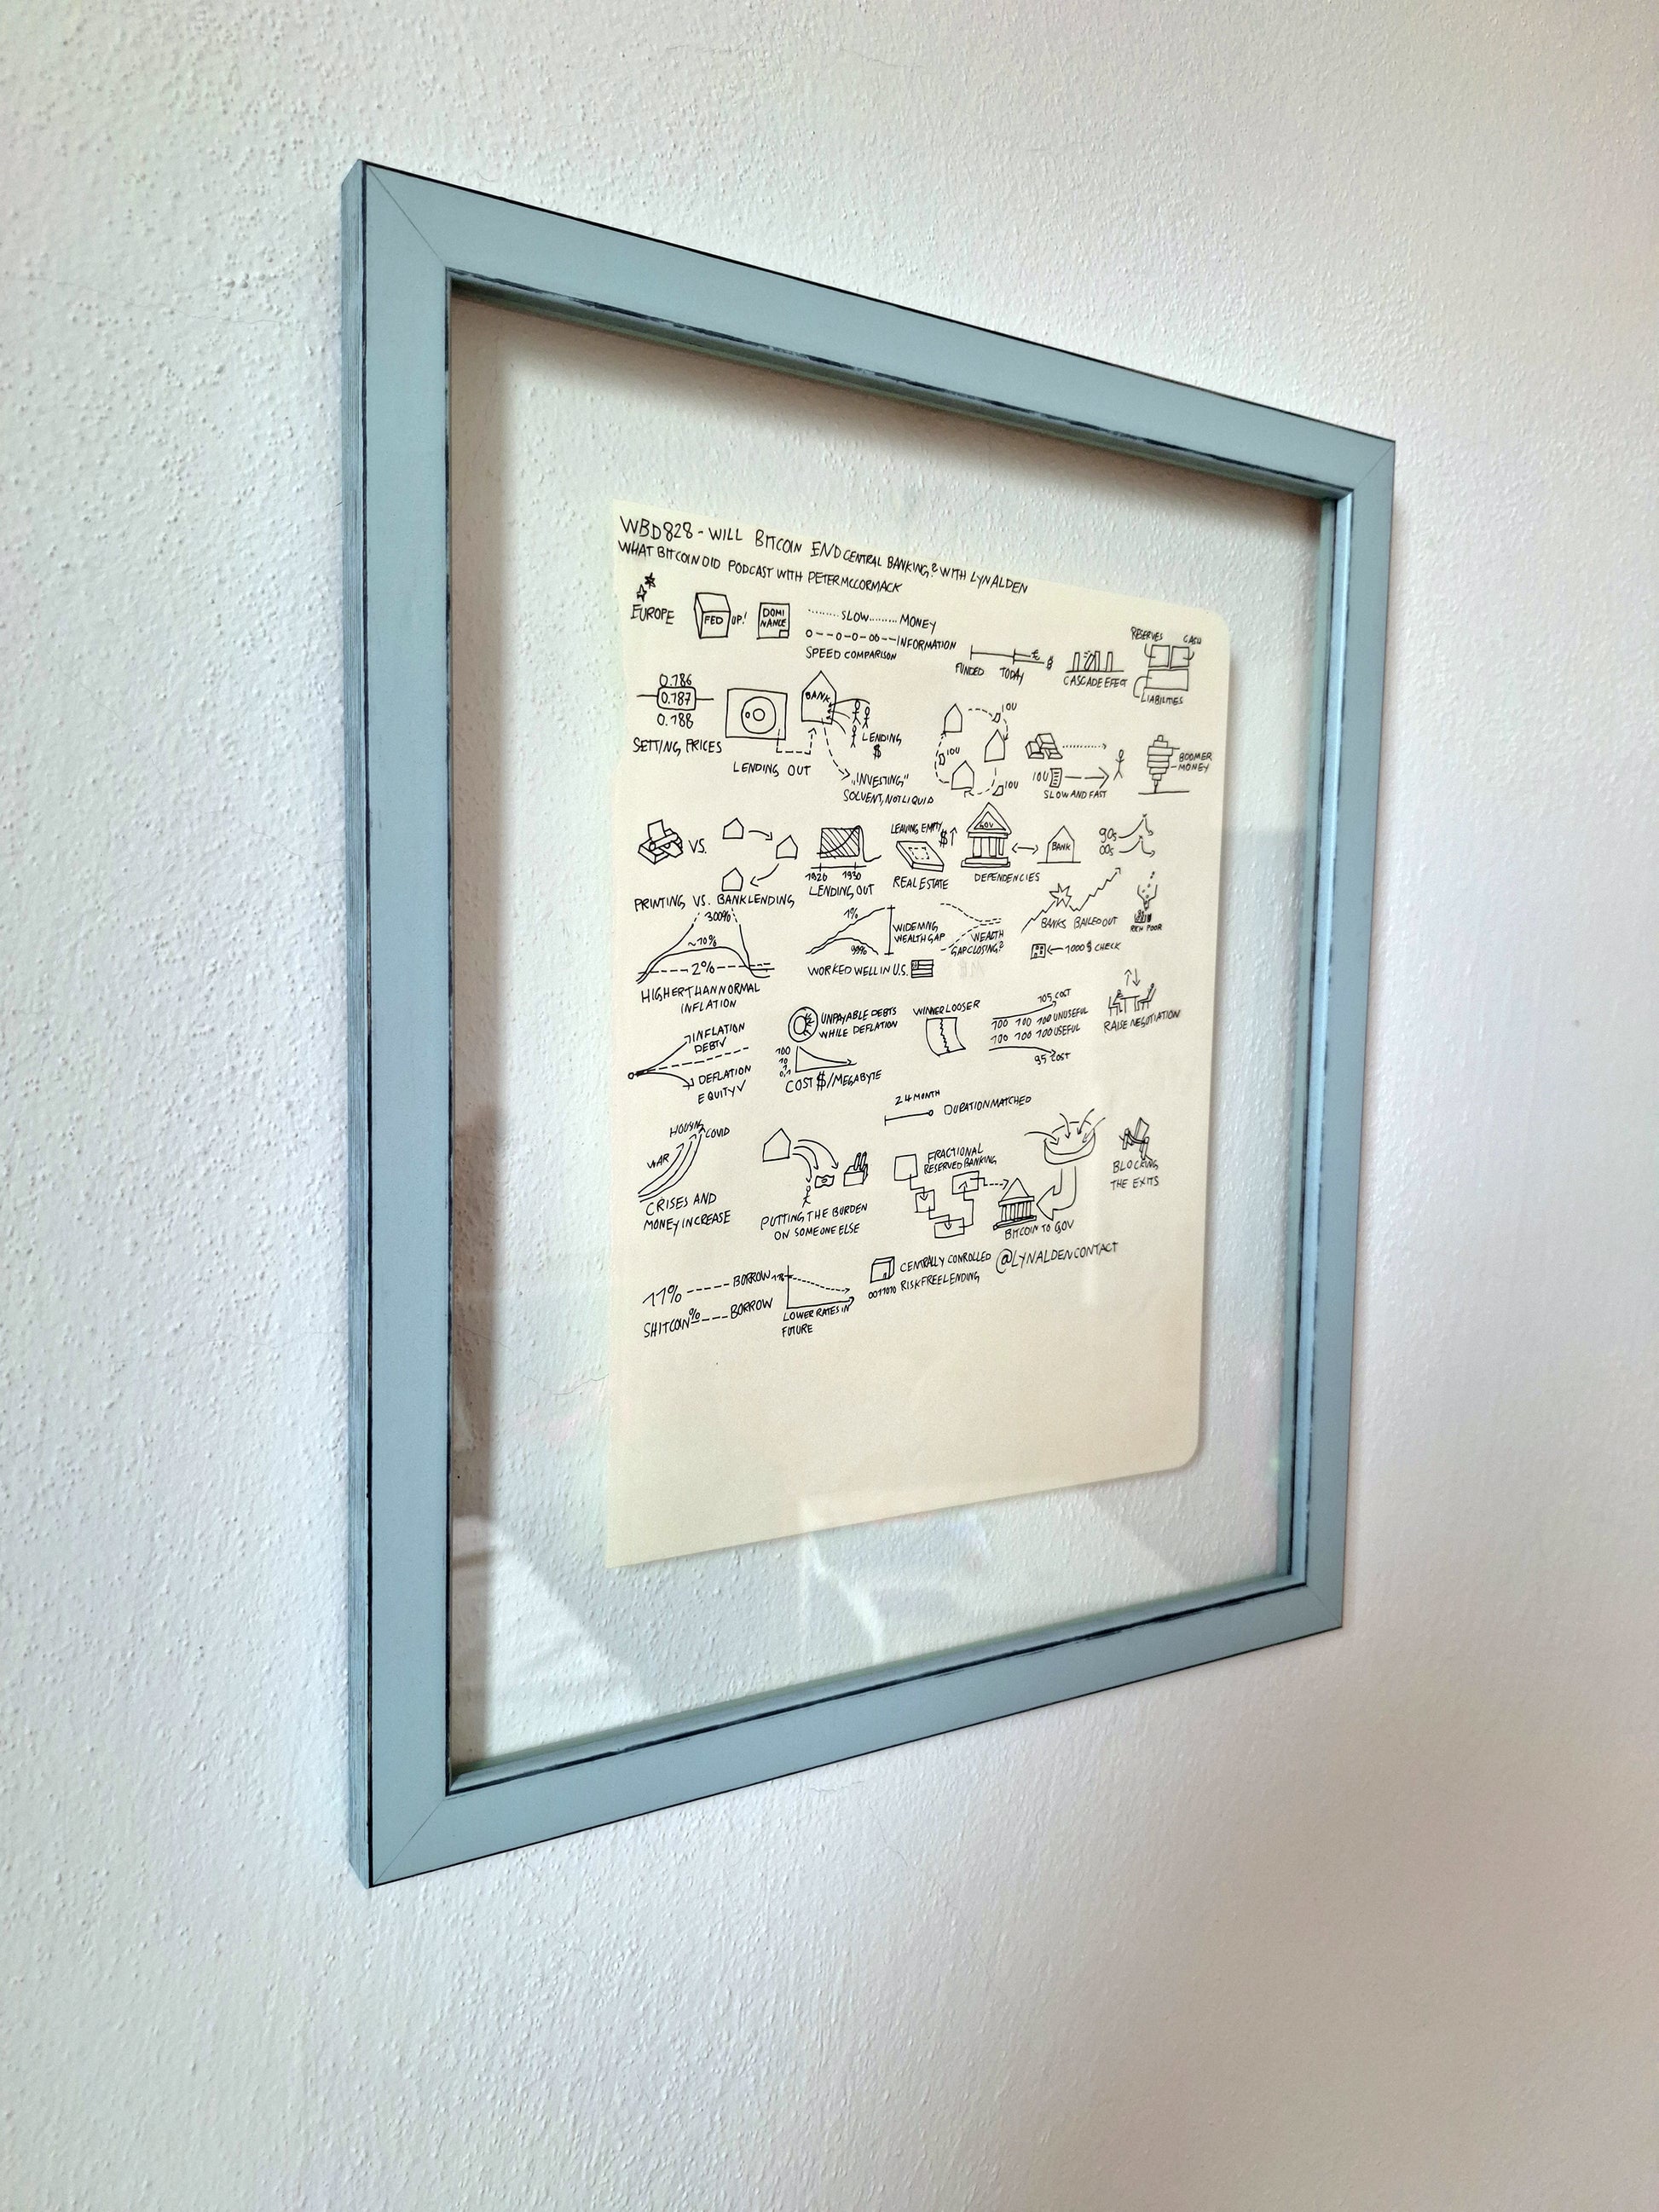 WBD828 - WILL BITCOIN END CENTRAL BANKING? WITH LYN ALDEN
WHAT BITCOIN DID PODCAST WITH PETER MCCORMACK
EUROPE
FED UP!
DOMI
NANCE
SLOW MONEY
INFORMATION
SPEED COMPARISON
FUNDED TODAY
CASCADE EFFECT
RESERVES CASH
LIABILITIES
0.786
0.787
0.788
SETTING PRICES
LENDING OUT
BANK
LENDING
$
„INVESTING"
SOLVENT, NOT LIQUID
IOU
IOU
IOU
IOU
SLOW AND FAST
BOOMER
MONEY
VS.
PRINTING VS. BANKLENDING
1920 1930
LENDING OUT
LEAVING EMPTY
$
REAL ESTATE
GOV
BANK
DEPENDENCIES
90s
00s
300%
~10%
2%
HIGHER THAN NORMAL
INFLATION
1%
99%
WIDENING
WEALTH GAP
WORKED WELL IN U.S.
WEALTH
GAP CLOSING?
BANKS BAILED OUT
1000$ CHECK
RICH POOR
INFLATION
DEBT√
DEFLATION
EQUITY√
UNPAYABLE DEBTS
WHILE DEFLATION
100
10
1
0,1
COST $/MEGABYTE
WINNER LOOSER
105 COST
100 100 100 UNUSEFUL
100 100 100 USEFUL
95 COST
RAISE NEGOTIATION
24 MONTH
DURATION MATCHED
WAR
HOUSING
COVID
CRISES AND
MONEY INCREASE
PUTTING THE BURDEN
ON SOMEONE ELSE
FRACTIONAL
RESERVED BANKING
BITCOIN TO GOV
BLOCKING
THE EXITS
11% BORROW
SHITCOIN % BORROW
11%
LOWER RATES IN
FUTURE
CENTRALLY CONTROLLED
0011010 RISK FREE LENDING
@LYNALDENCONTACT